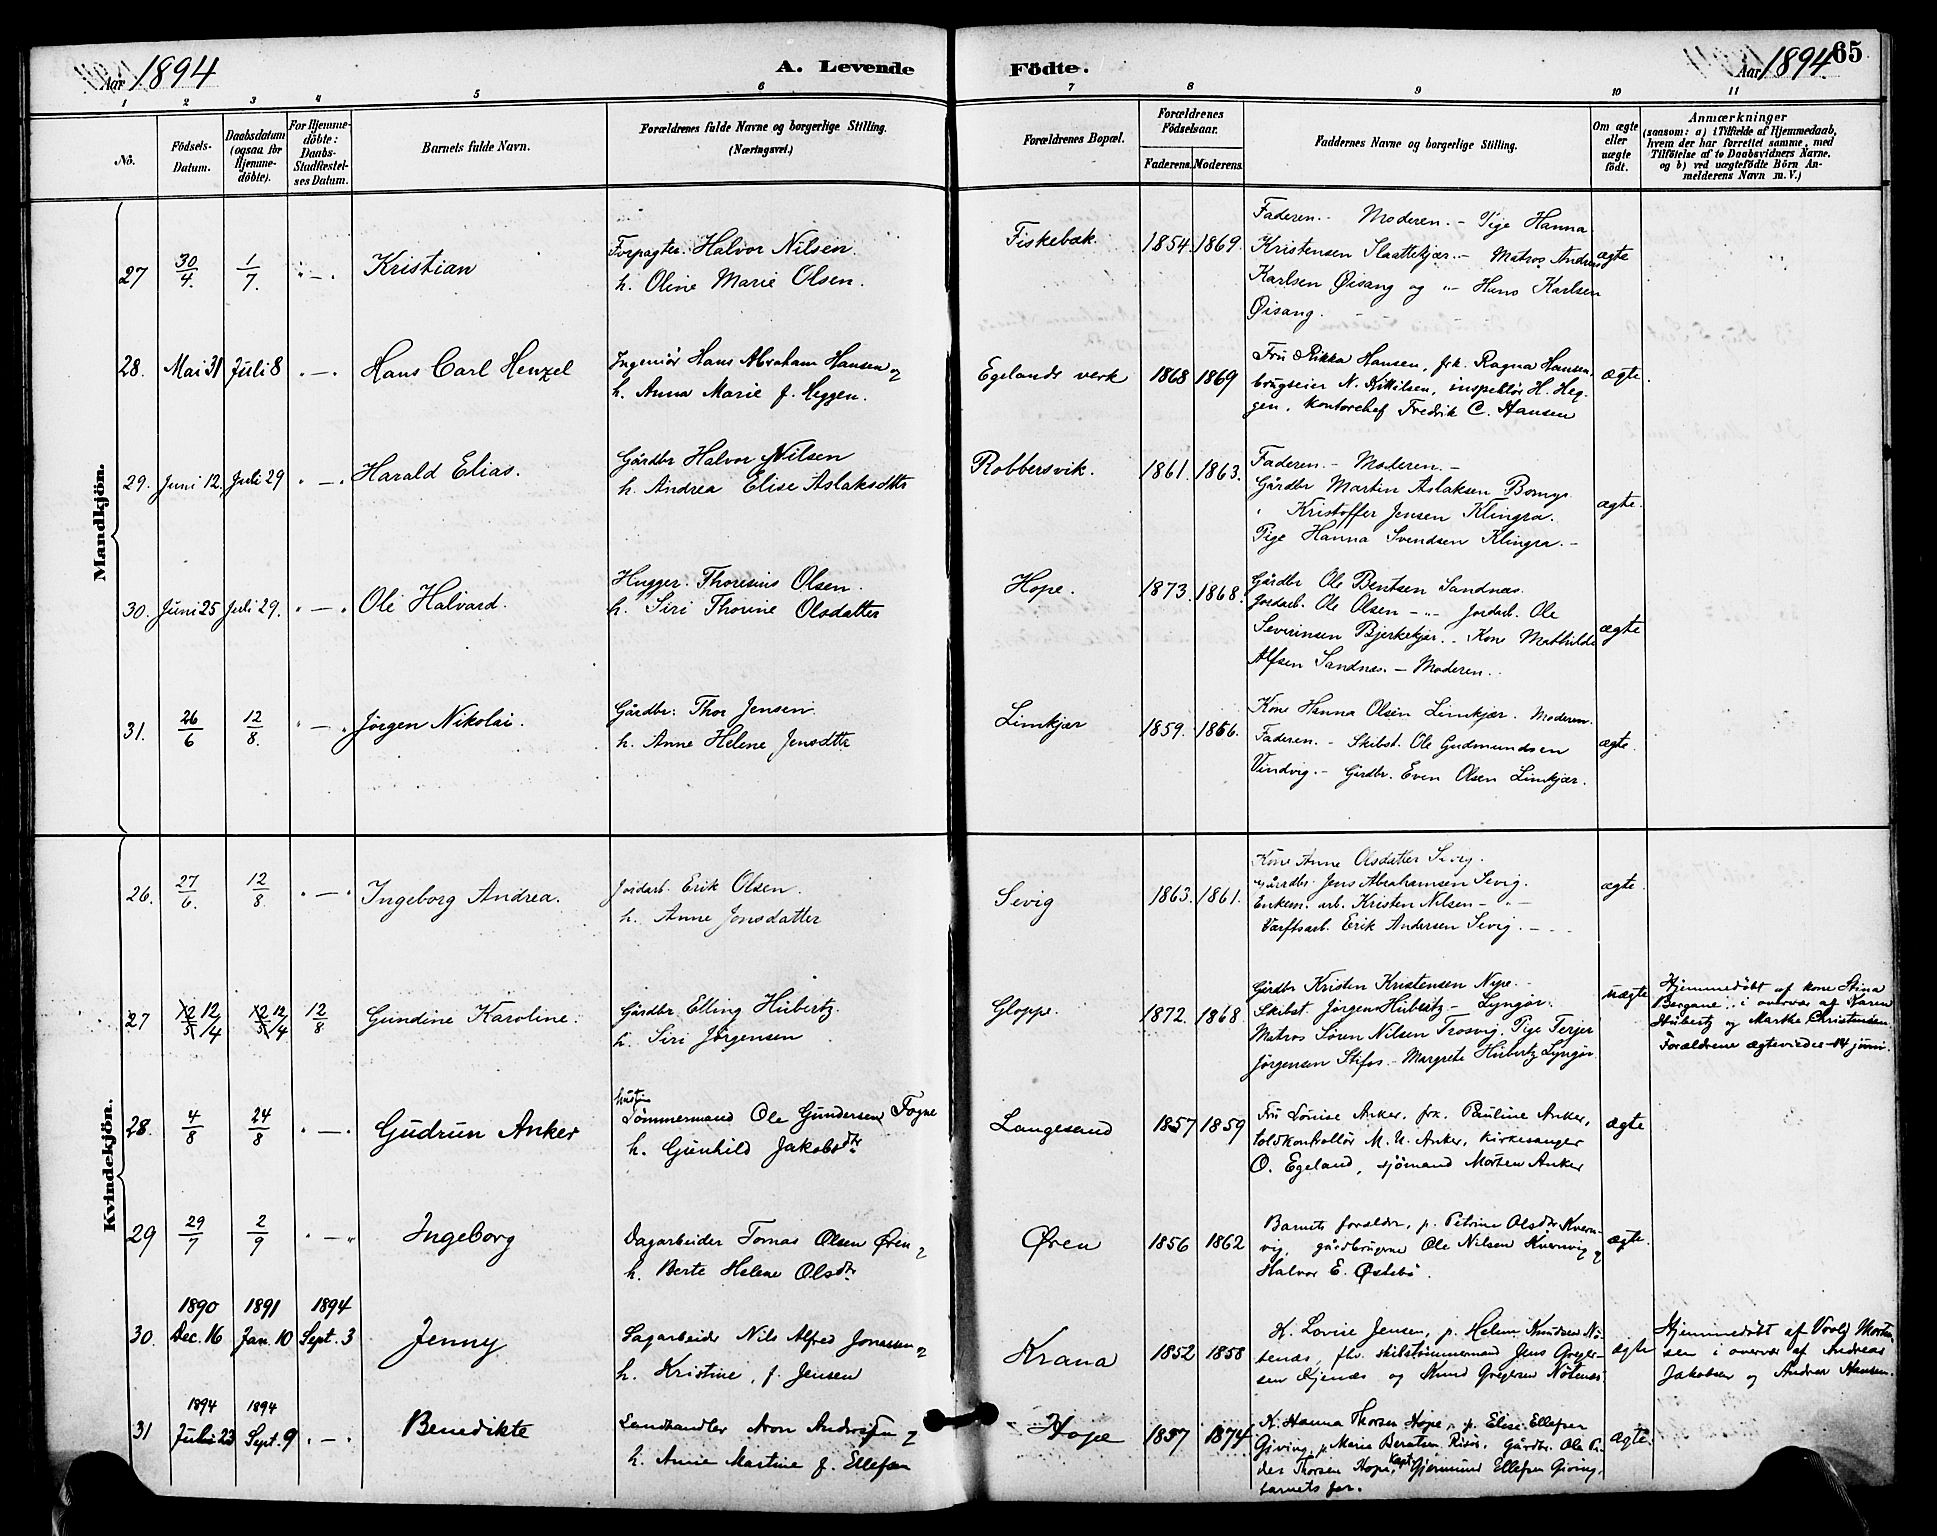 Aar 1894
A. Levende Födte.
Aar 1894
65
1 2 3 4 5 6 7 8 9 10 11
No.
Födsels-
Datum.
Daabsdatum
(ogsaa for
Hjemme-
döbte).
For Hjemme-
döbte:
Daabs-
Stadfæstel-
ses Datum.
Barnets fulde Navn.
Forældrenes fulde Navne og borgerlige Stilling.
(Næringsvei.)
Forældrenes Bopæl.
Forældrenes
Födselsaar.
Faderens. Moderens.
Faddernes Navne og borgerlige Stilling.
Om ægte
eller
uægte
födt.
Anmærkninger
(saasom: a) i Tilfælde af Hjemmedaab,
hvem der har forrettet samme, med
Tilföielse af to Daabsvidners Navne,
og b) ved uægtefödte Börn An-
melderens Navn m. V.)
Mandkjön.
27 30/4. 1/7. " — . Kristian
Forpagter. Halvor Nilsen.
h. Oline Marie Olsen.
Fiskebæk. 1854. 1869.
Faderen. - Moderen. - Pige Hanna
Kristensen Slaattekjær. - Matros Andreas
Karlsen Øisang og " Hans Karlsen
Øisang.
ægte
28. Mai 31 Juli 8 . — . Hans Carl Henzel
Ingeniör Hans Abraham Hansen og
h. Anna Marie f. Heggen.
Egelands verk 1868 1869
Fru Rikka Hansen, frk. Ragna Hansen,
brugseier N. Nilsen, inspektör H. Heg-
gen, kontorchef Fredrik C. Hansen
ægte.
29. Juni 12. Juli 29 . — . Harald Elias.
Gårdbr Halvor Nilsen
h. Andrea Elise Aslaksdttr
Robbersvik. 1861. 1863.
Faderen. - Moderen. -
Gårdbr Martin Aslaksen Bomyr
" Kristoffer Jensen Klingra.
Pige Hanna Svendsen Klingra. -
ægte.
30. Juni 25 Juli 29. . — . Ole Halvard.
Hugger. Thoresius Olsen.
h. Siri Thorine Olsdatter
Hope. 1873. 1868.
Gårdbr Ole Bentsen Sandnæs.
Jordarb. Ole Olsen - " - Jordarb. Ole
Severinsen Bjerkekjær. - Kone Mathilde
Alfsen Sandnæs. - Moderen.
ægte
31. 26/6 12/8. . — . Jörgen Nikolai.
Gårdbr: Thor Jensen.
h. Anne Helene Jensdttr
Limkjær 1859. 1866.
Kone Hanna Olsen Limkjær. Moderen.
Faderen. - Skibst. Ole Gudmundsen
Vindvig. - Gårdbr. Even Olsen Limkjær.
ægte.
Kvindekjön.
26. 27/6. 12/8. . — . Ingeborg Andrea.
Jordarb. Erik Olsen.
h. Anne Jonsdatter
Sevig 1863. 1861.
Kone Anne Olsdatter Sevig.
Gårdbr. Jens Abrahamsen Sevig.
Enkem. arb. Kristen Nilsen - " -
Værftsarb. Erik Andersen Sevig. -
ægte.
27 12/5 12/4 12/5 12/4 12/8 Gundine Karoline.
Gårdbr. Elling Hubertz.
h. Siri Jörgensen
Gloppe. 1872. 1868.
Gårdbr Kristen Kristensen Nype. -
Skibst. Jörgen Hubertz - Lyngör.
Matros Sören Nilsen Trosvig. Pige Terjer
Jörgensen Stifos. - Margrete Hubertz Lyngör
uægte
Hjemmedöbt af kone Stina
Bergane i overvær af Karen
Hubertz og Marthe Christensen.
Forældrene ægteviedes 14 juni.
28. 4/8 24/8 . — . Gudrun Anker
Tömmermand Ole Gundersen Togne
h. Gunhild Jakobsdtr
Langesand 1857 1859
Fru Lovise Anker, frk. Pauline Anker,
toldkontrollör M. U. Anker, kirkesanger
O. Egeland, sjömand Morten Anker
ægte
29 29/7 2/9 . — " Ingeborg
Dagarbeider Tomas Olsen Øren og
h. Berte Helene Olsdtr
Øren 1856 1862
Barnets forældre, p. Petrine Olsdtr Kvern-
vig, gårdbrugerne Ole Nilsen Kvernvig og
Halvor E. Østebö.
ægte.
30. 1890 Dec. 16 1891 Jan. 10 1894 Sept. 3 Jenny
Sagarbeider Nils Alfred Jonassen og
h. Kristine, f. Jensen
Krana 1852 1858
K. Lovise Jensen, p. Helene Knudsen Nö-
tenæs, fhv. skibstömmermand Jens Greger-
sen Stjenæs og Knud Gregersen Nötenæs
ægte
Hjemmedöbt af Vvold Morten-
sen i overvær af Andreas
Jakobsen og Andrea Hansen.
31 1894 Juli 23 1894 Sept. 9 . — . Benedikte
Landhandler Aron Andersen og
h. Anne Martine f. Ellefsen
Hope 1857 1874
K. Hanna Thorsen Hope, p. Elise Ellefsen
Giving, p. Maria Berntsen Risör, Gårdbr. Ole Pe-
der Thorsen Hope, Kapt. Gjermund Ellefsen Giving,
barnets far.
ægte.